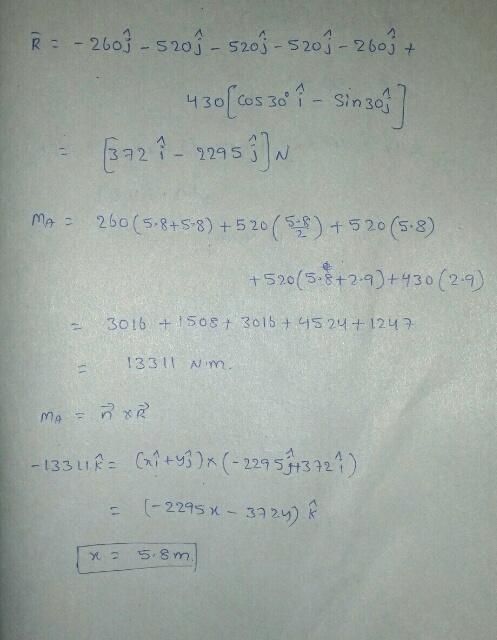 R̄ = - 260ĵ - 520ĵ - 520ĵ - 520ĵ - 260ĵ +
430[cos 30° î - Sin 30ĵ]
= [372 î - 2295 ĵ] N
MA = 260(5.8+5.8) + 520(5.8/2) + 520(5.8)
+520(5.8+2.9)+430(2.9)
= 3016 + 1508 + 3016 + 4524 + 1247
= 13311 N.m.
MA = r⃗ x R⃗
-13311 k̂ = (xî + yĵ) x (-2295ĵ+372î)
= (-2295x - 372y) k̂
x = 5.8 m.